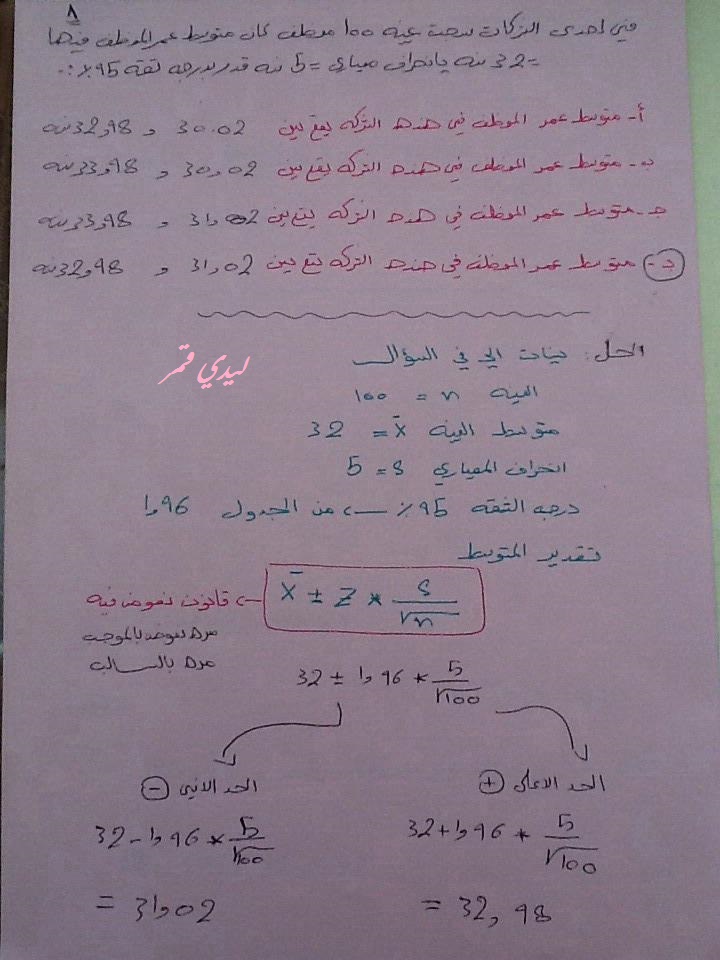 ٨
في احدى الشركات سحبت عينه 100 موظف كان متوسط عمر الموظف فيها
= 32 سنه بانحراف معياري = 5 سنه قدر بدرجه ثقه 95٪ :-
أ- متوسط عمر الموظف في هذه الشركه يقع بين 30.02 و 32,98 سنه
ب- متوسط عمر الموظف في هذه الشركه يقع بين 30,02 و 33,98 سنه
ج- متوسط عمر الموظف في هذه الشركه يقع بين 31,02 و 33,98 سنه
د- متوسط عمر الموظف في هذه الشركه يقع بين 31,02 و 32,98 سنه
الحل: بينات الي في السؤال
ليدي قمر
العينه n = 100
متوسط العينه x̄ = 32
انحراف المعياري s = 5
درجه الثقه 95٪ ← من الجدول 1,96
تقدير المتوسط
x̄ ± Z * s/√n ← قانون نعوض فيه
مره نعوض بالموجب
مره بالسالب
32 ± 1,96 * 5/√100
الحد الاعلى +
32 + 1,96 * 5/√100
= 32,98
الحد الادنى −
32 − 1,96 * 5/√100
= 31,02